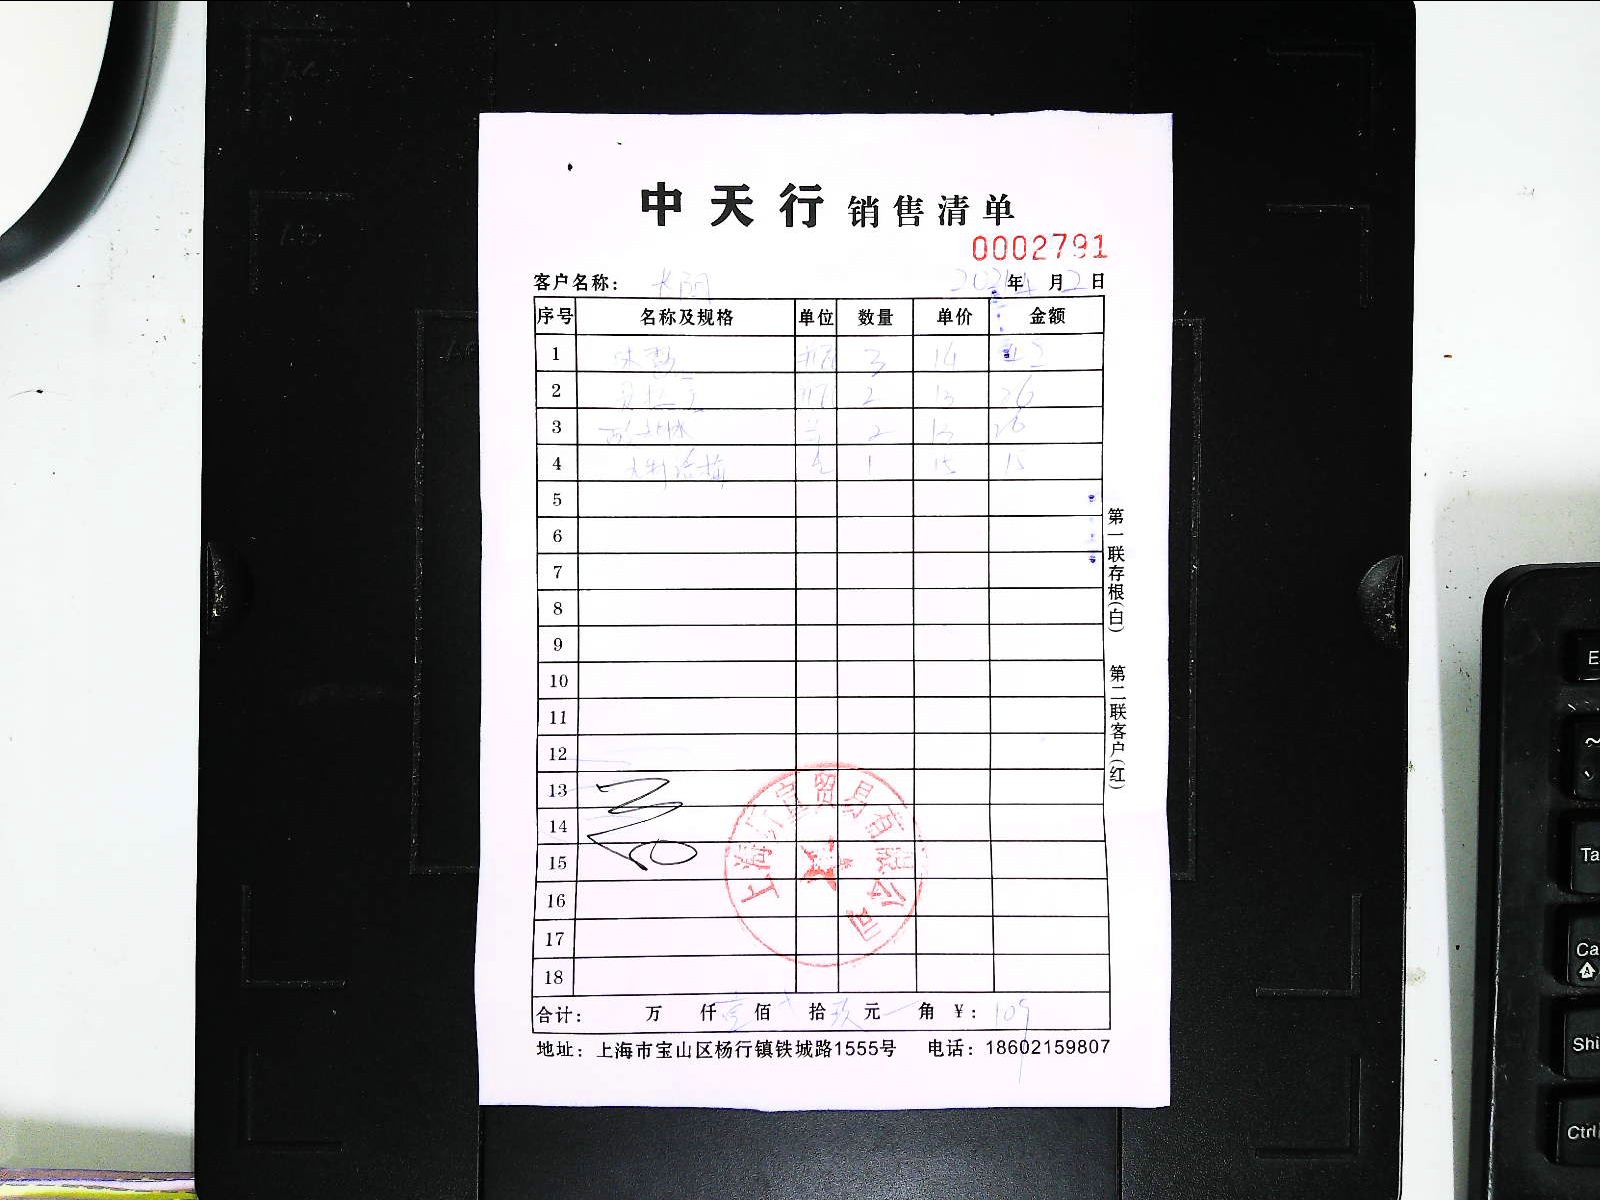 中天行 销售清单
0002791
客户名称： 年 月2日
序号 名称及规格 单位 数量 单价 金额
1 瓶 3 14
2 瓶 2 13 26
3 2 13 26
4 1 15 15
5
6
7
8
9
10
11
12
13
14
15
16
17
18
合计： 万 仟壹佰 拾玖元 角 ￥：109
地址：上海市宝山区杨行镇铁城路1555号 电话：18602159807
第一联存根(白) 第二联客户(红)
上海 宝贸易有限公司
E
Ta
Ca
Shi
Ctrl